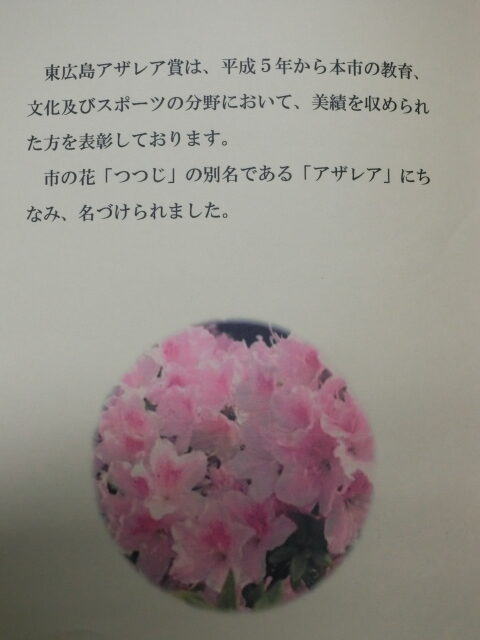 東広島アザレア賞は、平成５年から本市の教育、
文化及びスポーツの分野において、美績を収められ
た方を表彰しております。
市の花「つつじ」の別名である「アザレア」にち
なみ、名づけられました。